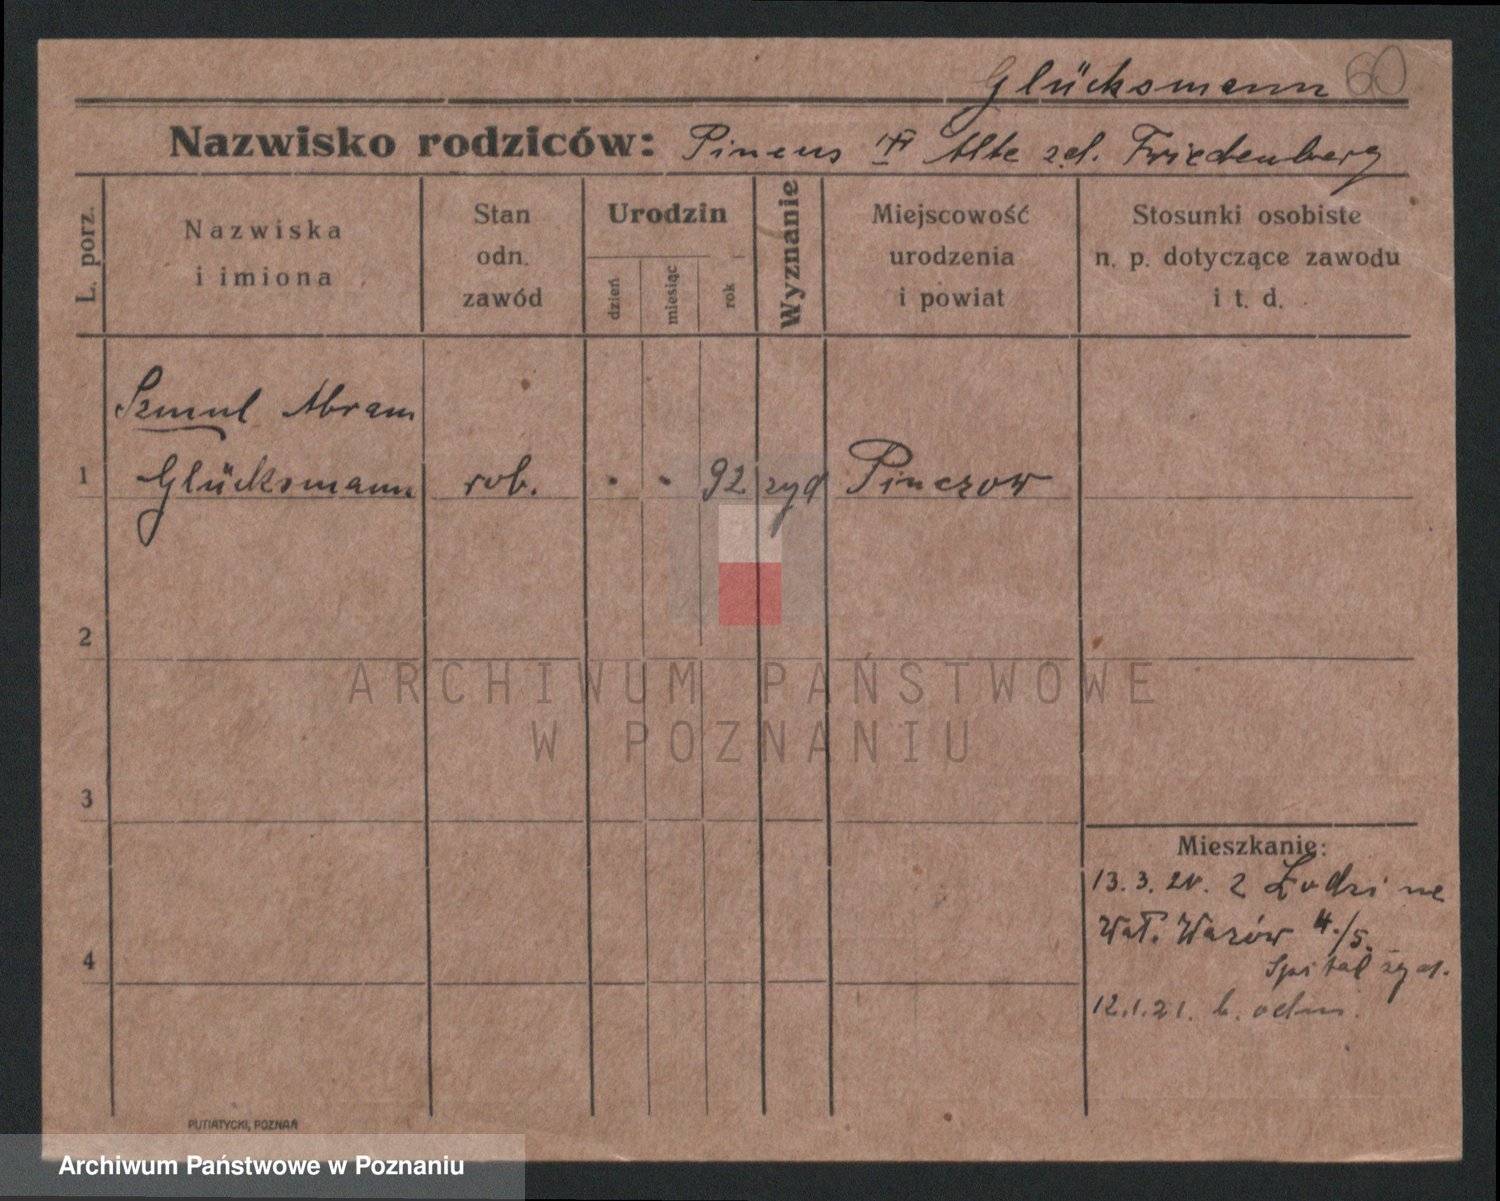 Glücksmann 60
Nazwisko rodziców: Pincus i Alte zd. Friedenberg
L. porz.
Nazwiska
i imiona
Stan
odn.
zawód
Urodzin
dzień
miesiąc
rok
Wyznanie
Miejscowość
urodzenia
i powiat
Stosunki osobiste
n. p. dotyczące zawodu
i t. d.
Szmul Abram
1 Glücksmann rob. · · 92 żyd Pinczow
2
ARCHIWUM PAŃSTWOWE
W POZNANIU
3
Mieszkanie:
13. 3. 20. z Łodzi
Wał. Wazów 4./5.
Spital żyd.
4
12.1.21. b. odm.
PUTIATYCKI, POZNAŃ
Archiwum Państwowe w Poznaniu